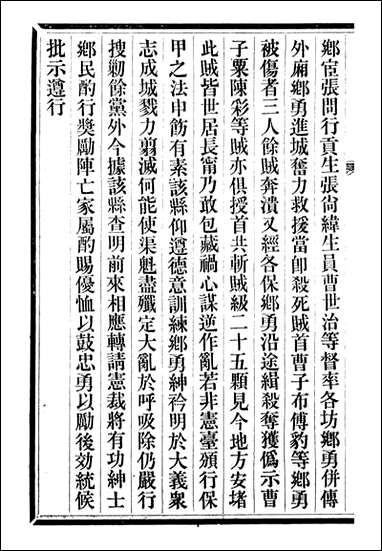 鄉宦張問行貢生張尙緯生員曹世治等督率各坊鄉勇併傳
外廂鄉勇進城奮力救援當卽殺死賊首曹子布傅豹等鄉勇
被傷者三人餘賊奔潰又經各保鄉勇沿途緝殺奪獲僞示曹
子粟陳彩等賊亦俱授首共斬賊級二十五顆見今地方安堵
此賊皆世居長甯乃敢包藏禍心謀逆作亂若非憲臺頒行保
甲之法申飭有素該縣仰遵德意訓練鄉勇紳衿明於大義衆
志成城戮力翦滅何能使渠魁盡殲定大亂於呼吸除仍嚴行
搜勦餘黨外今據該縣查明前來相應轉請憲裁將有功紳士
鄉民酌行獎勵陣亡家屬酌賜優恤以鼓忠勇以勵後効統候
批示遵行